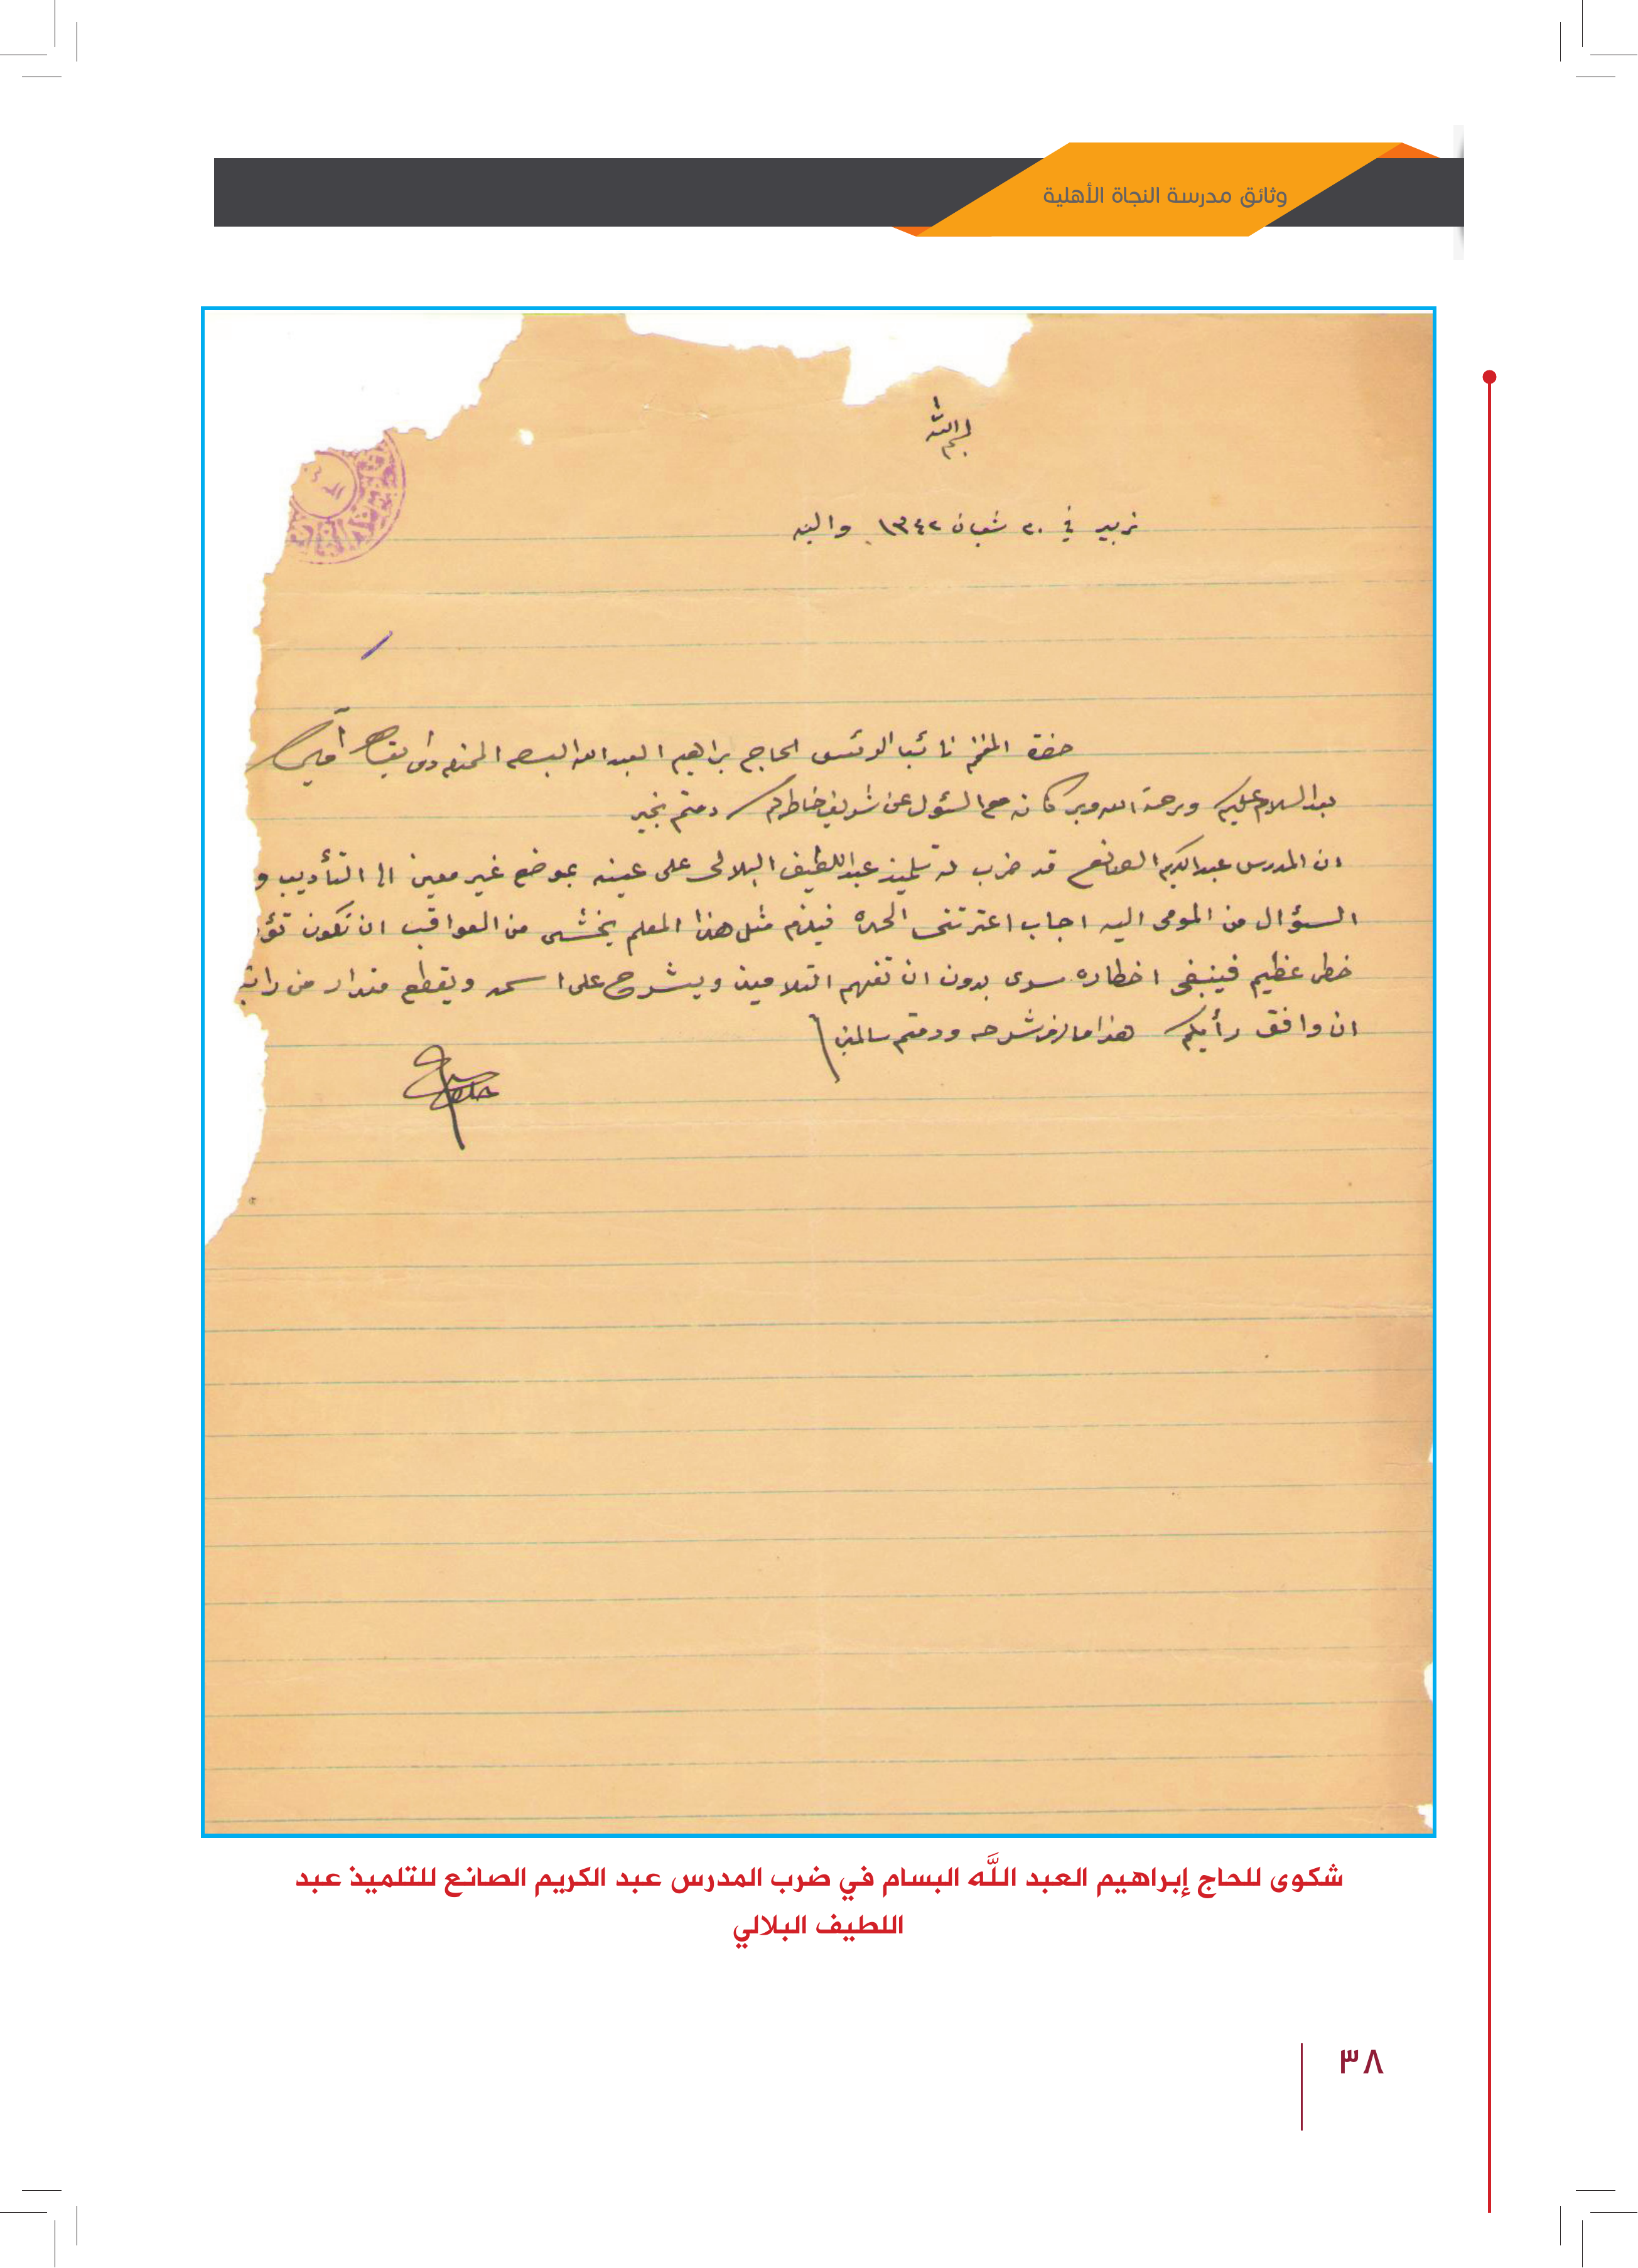 وثائق مدرسة النجاة الأهلية
بسم الله
زبير في ٢٠ شعبان ١٣٤٢ واليه
حضرة المفخم نائب الرئيس الحاج براهيم العبد الله البسام المحترم دام بقاه آمين
بعد السلام عليكم ورحمة الله وبركاته مع السئول عن شريف خاطركم دمتم بخير
ان المدرس عبد الكريم الصانع قد ضرب تلميذ عبد اللطيف البلالي على عينه بموضع غير معين الى التأديب و
السؤال من المومى اليه اجاب اعترتني الحده فيلزم مثل هذا المعلم يخشى من العواقب ان تكون تؤ
خطر عظيم فينبغي اخطاره سرى بدون ان تفهم التلاميذ ويشرح على اسمه ويقطع مقدار من راتبه
ان وافق رأيكم هذا ما لزم شرحه ودمتم سالمين
شكوى للحاج إبراهيم العبد اللَّه البسام في ضرب المدرس عبد الكريم الصانع للتلميذ عبد
اللطيف البلالي
٣٨